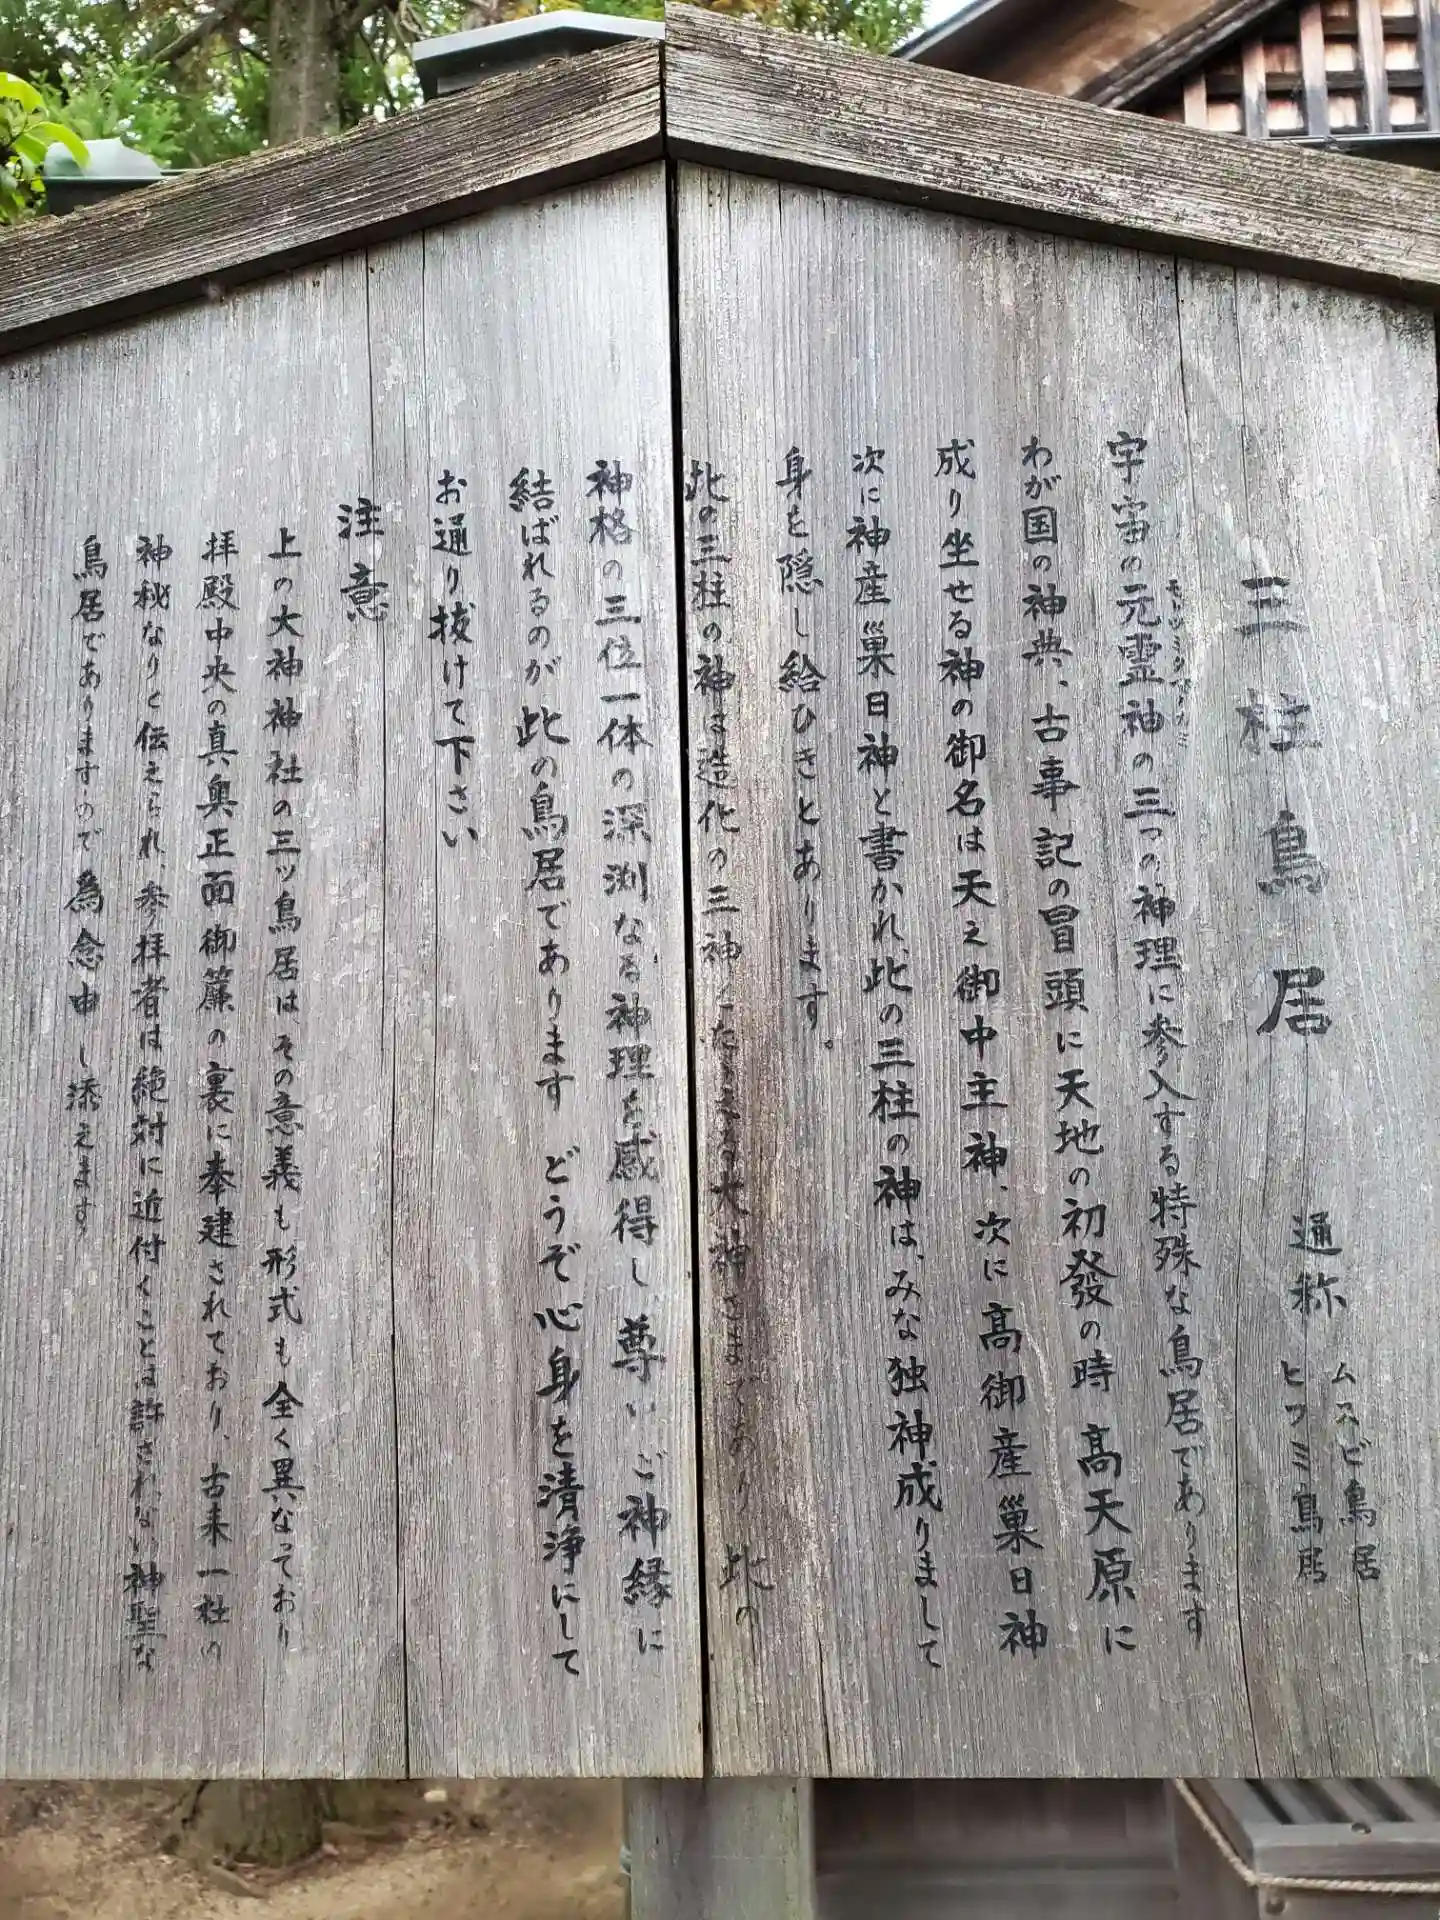 三柱鳥居 通称 ムスビ鳥居
ヒツミ鳥居
モトツミタマノカミ
宇宙の元霊神の三つの神理に参入する特殊な鳥居であります
わが国の神典、古事記の冒頭に天地の初発の時 高天原に
成り坐せる神の御名は天之御中主神、次に高御産巣日神
次に神産巣日神と書かれ、此の三柱の神は、みな独神成りまして
身を隠し給ひきとあります。
此の三柱の神は造化の三神 大神さまであり 此の
神格の三位一体の深渕なる神理を感得し 尊いご神縁に
結ばれるのが此の鳥居であります どうぞ心身を清浄にして
お通り抜けて下さい
注意
上の大神神社の三ッ鳥居は その意義も形式も全く異なっており
拝殿中央の真奥正面御簾の裏に奉建されており、古来一社の
神秘なりと伝えられ、参拝者は絶対に近付くことは許されない神聖な
鳥居でありますので 為念申し添えます